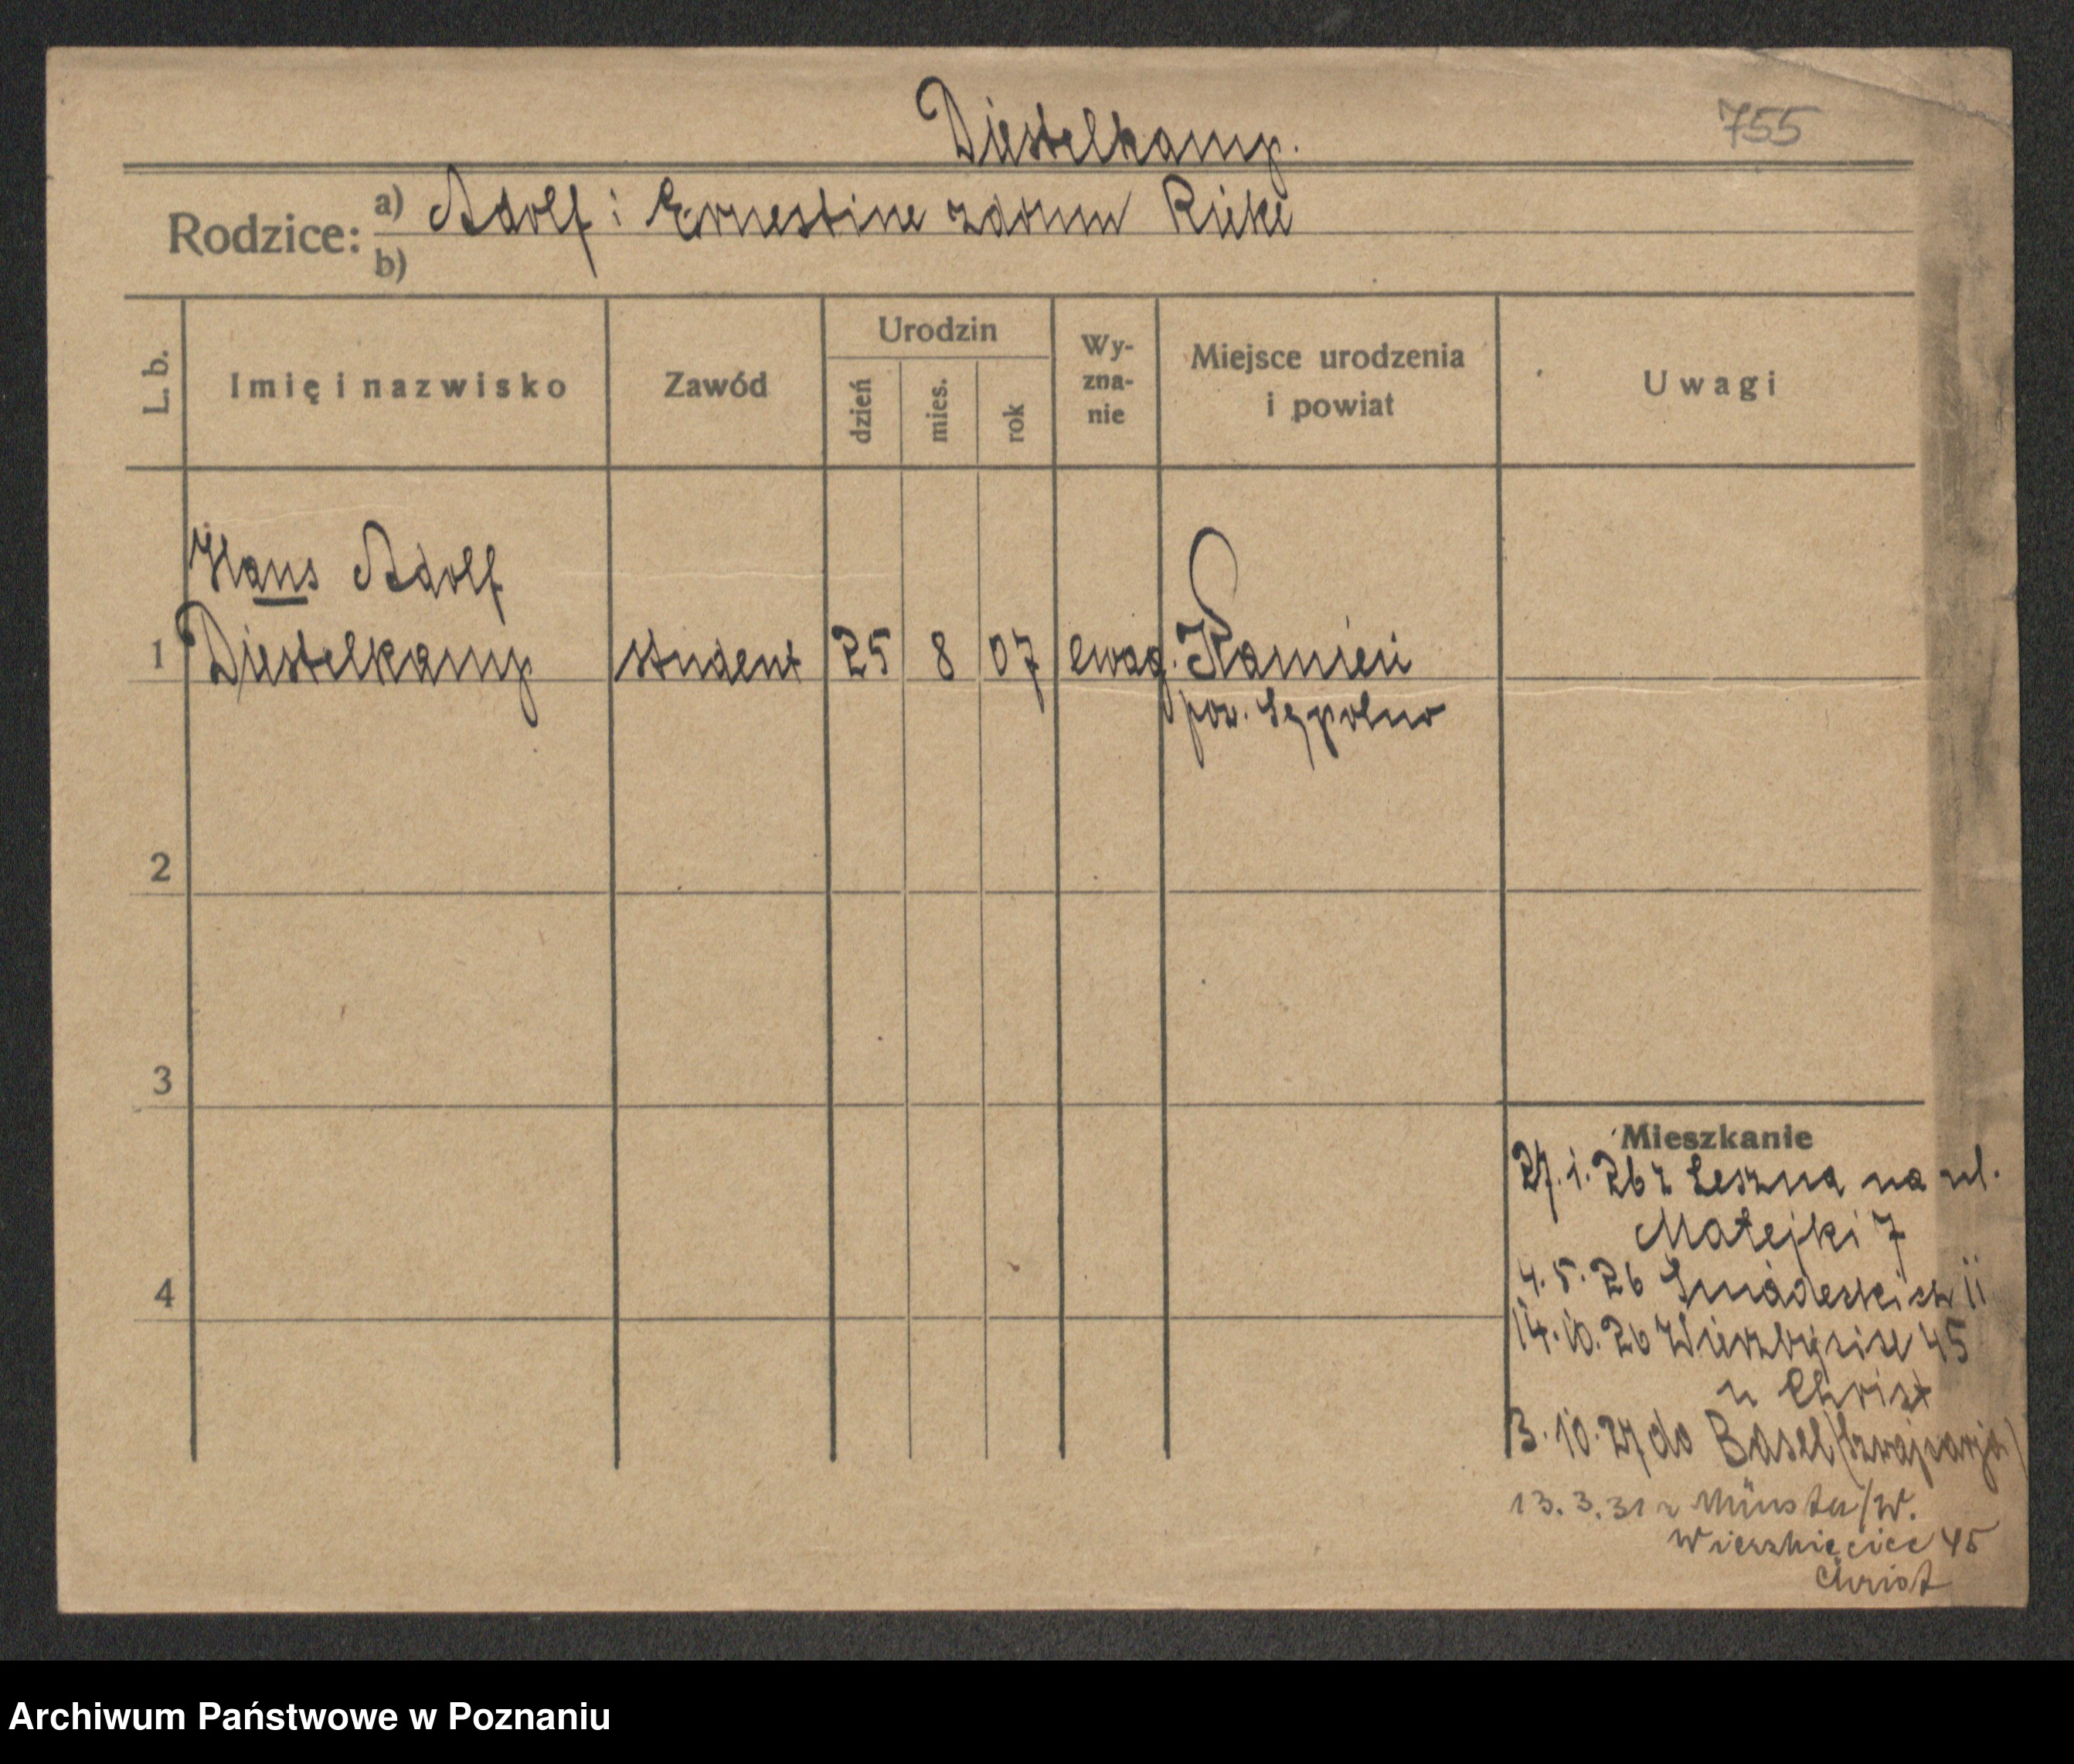 Diestelkamp.
755
Rodzice:
a) Adolf i Ernestine z domu Rieke
b)
L. b.
Imię i nazwisko
Zawód
Urodzin
dzień
mies.
rok
Wy-
zna-
nie
Miejsce urodzenia
i powiat
Uwagi
Hans Adolf
1 Diestelkamp student 25 8 07 ewag. Kamień
pow. Sępolno
2
3
4
Mieszkanie
27.1.26 z Leszna na ul.
Matejki 7
4.5.26 Śniadeckich 11
14.10.26 Wierzbięcice 45
u Christ
3.10.27 do Basel (Szwajcarja)
13.3.31 z Münster/W.
Wierzbięcice 45
Christ
Archiwum Państwowe w Poznaniu